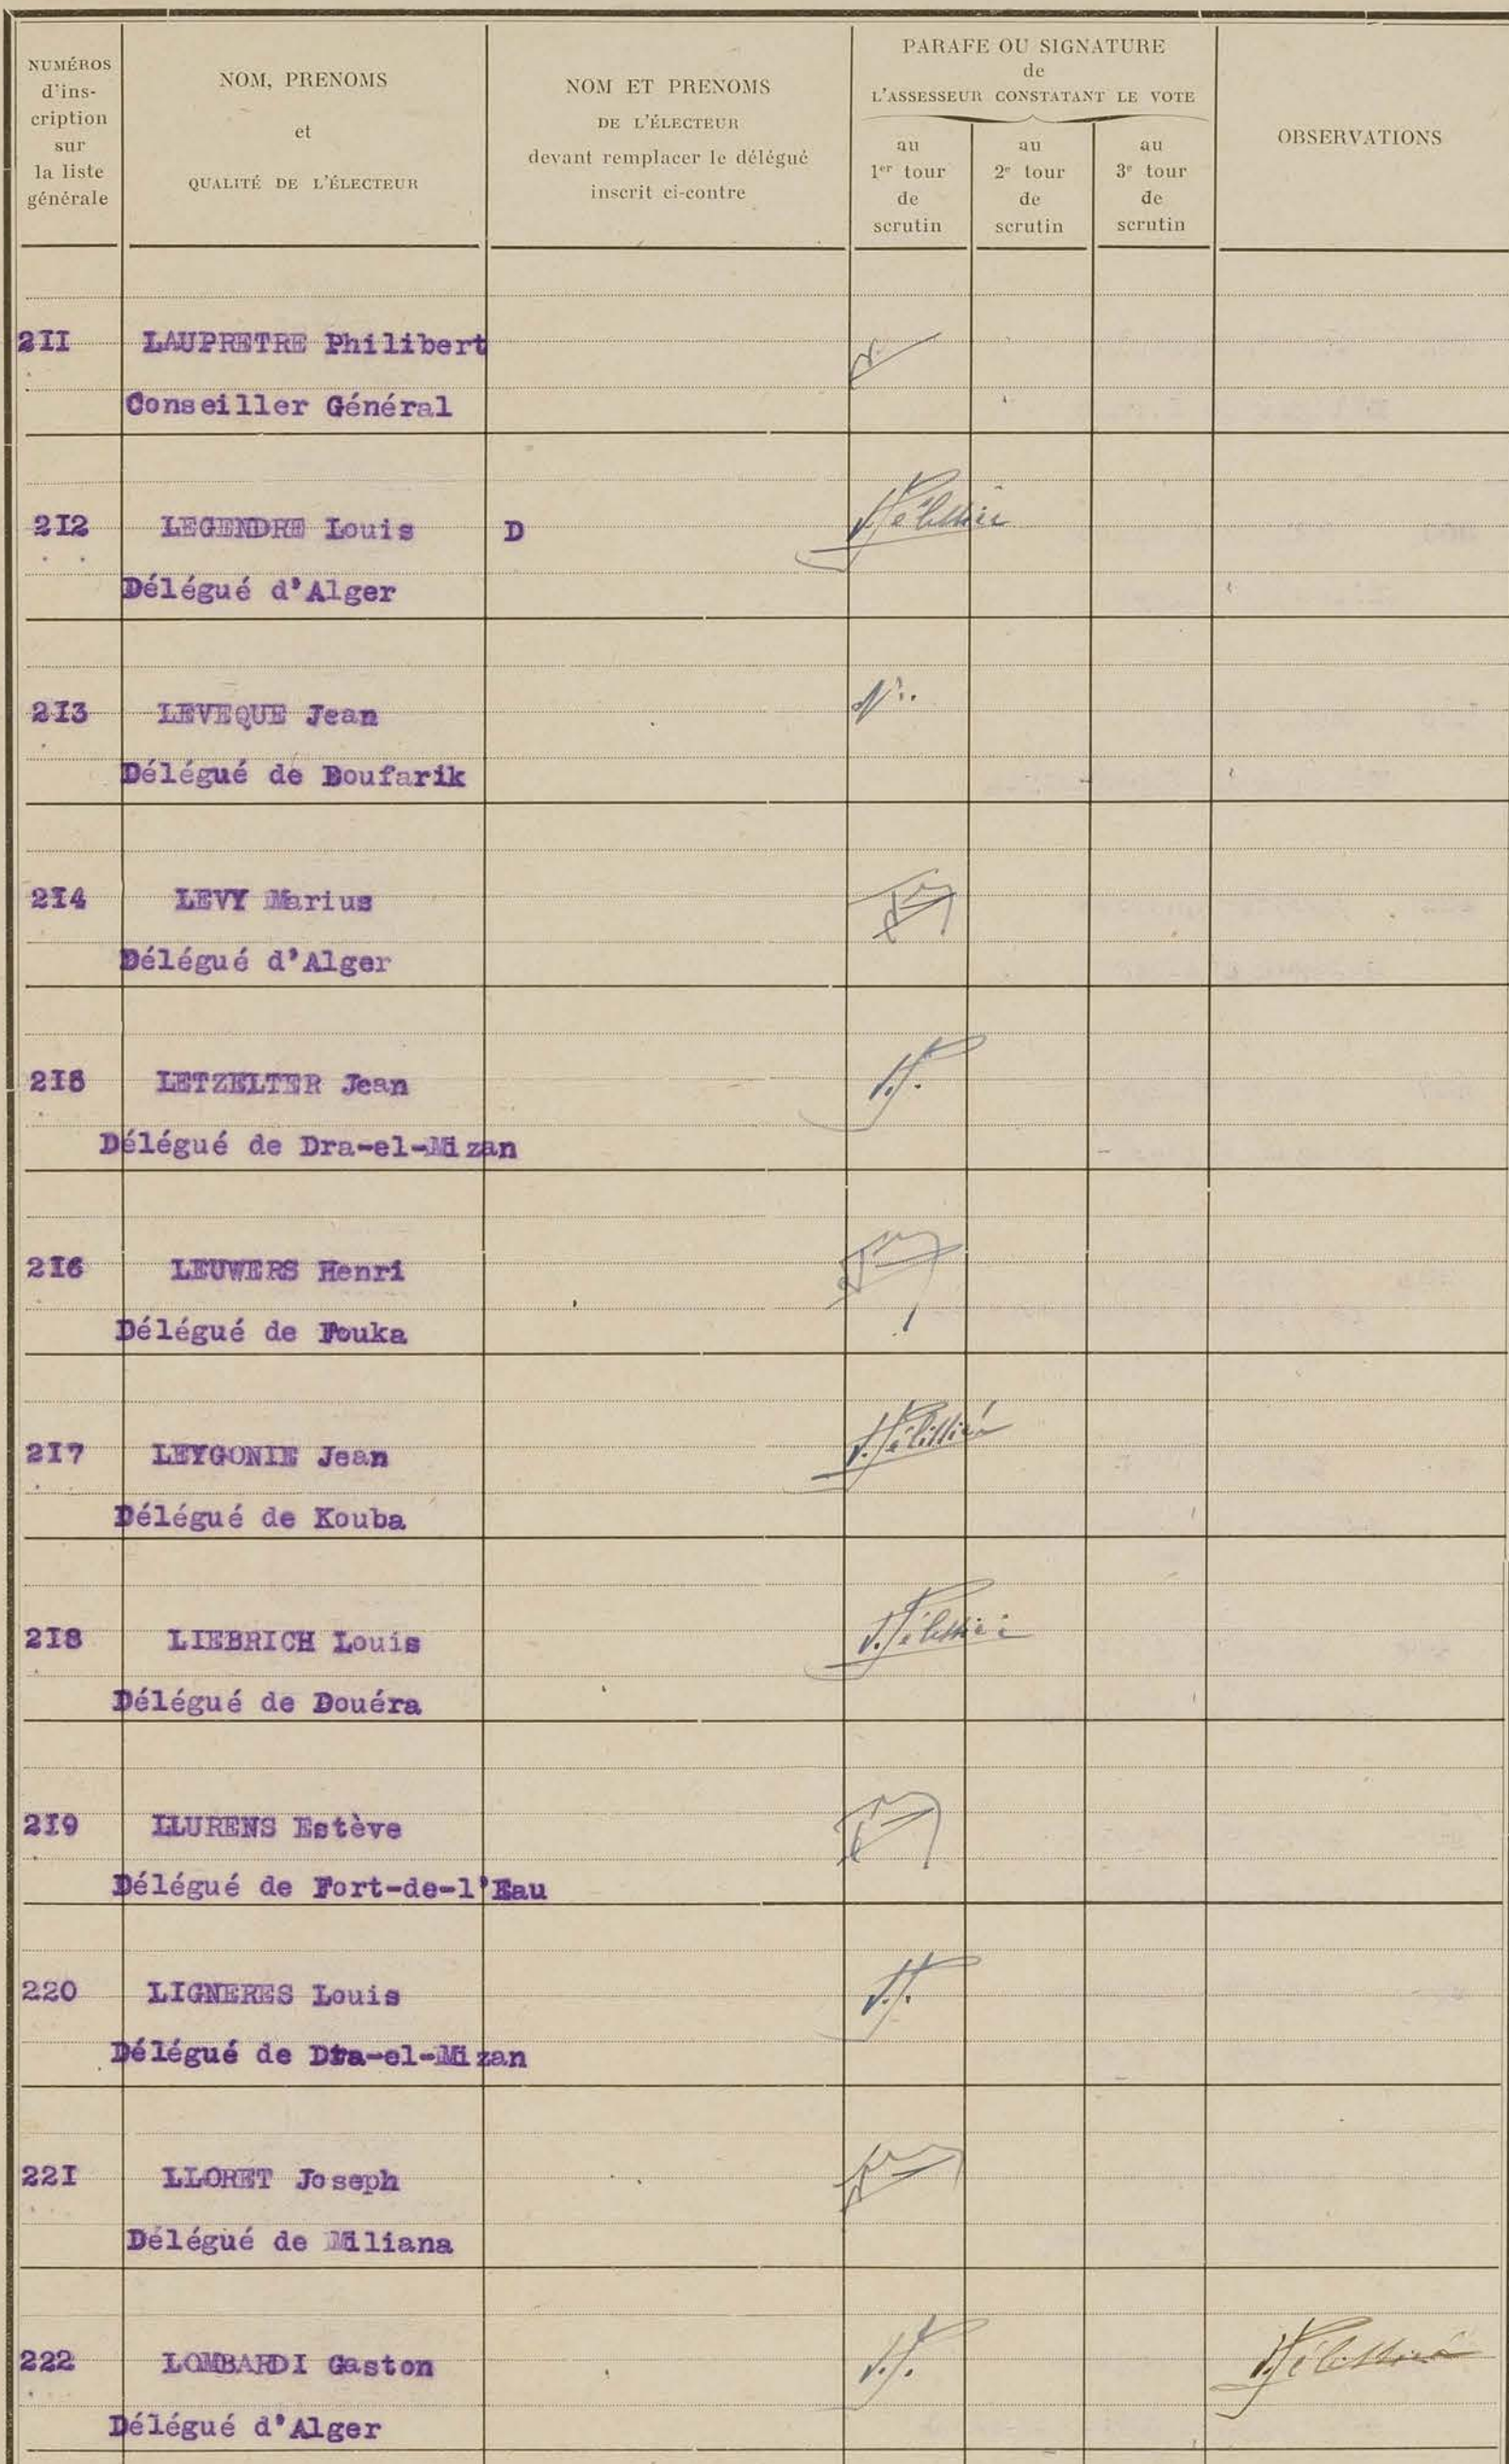 NUMÉROS
d'ins-
cription
sur
la liste
générale
NOM, PRENOMS
et
QUALITÉ DE L'ÉLECTEUR
NOM ET PRENOMS
DE L'ÉLECTEUR
devant remplacer le délégué
inscrit ci-contre
PARAFE OU SIGNATURE
de
L'ASSESSEUR CONSTATANT LE VOTE
au
1er tour
de
scrutin
au
2e tour
de
scrutin
au
3e tour
de
scrutin
OBSERVATIONS
2II LAUPRETRE Philibert
Conseiller Général
2I2 LEGENDRE Louis D
Délégué d'Alger
2I3 LEVEQUE Jean
Délégué de Boufarik
2I4 LEVY Marius
Délégué d'Alger
2I5 LETZELTER Jean
Délégué de Dra-el-Mizan
2I6 LEUWERS Henri
Délégué de Fouka
2I7 LEYGONIE Jean
Délégué de Kouba
2I8 LIEBRICH Louis
Délégué de Douéra
2I9 LLURENS Estève
Délégué de Fort-de-l'Eau
220 LIGNERES Louis
Délégué de Dra-el-Mizan
22I LLORET Joseph
Délégué de Miliana
222 LOMBARDI Gaston
Délégué d'Alger